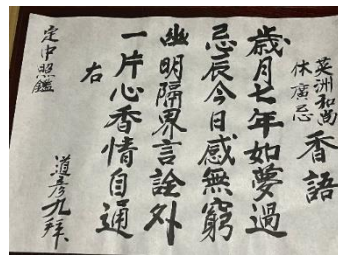 英洲和尚
休廣忌
香語
歳月七年如夢過
忌辰今日感無窮
幽明隔界言詮外
一片心香情自通
右
定中照鑑
道彦九拜